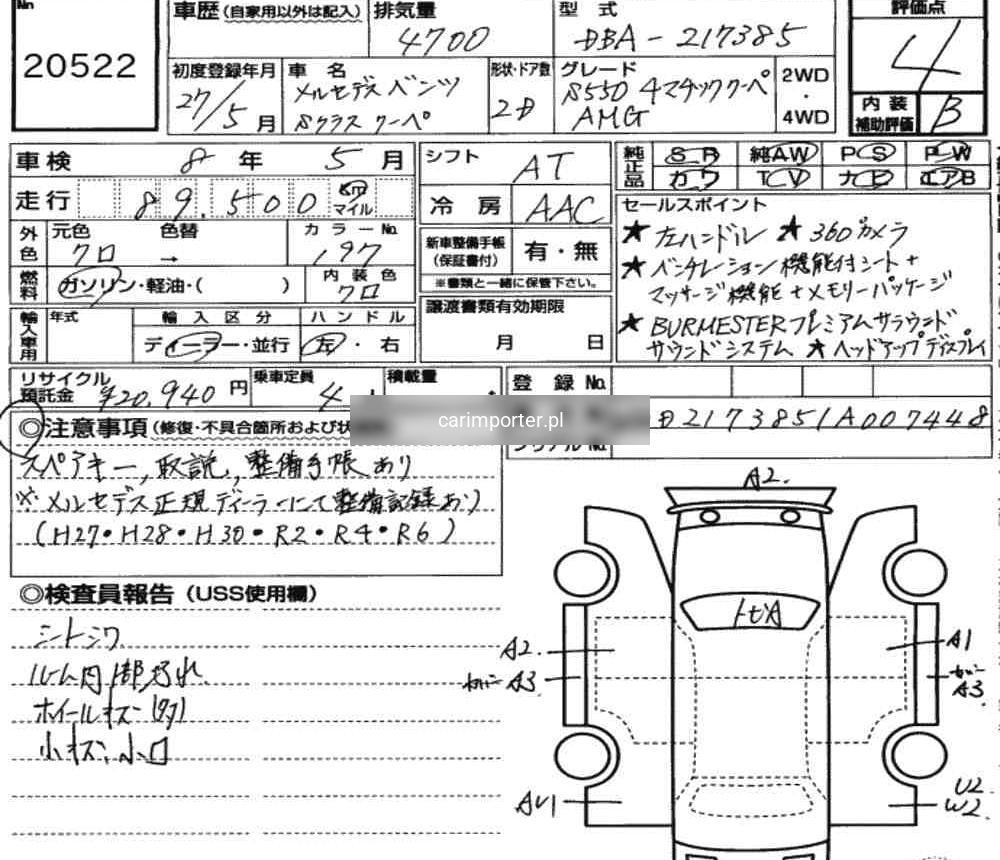 No
20522
車歴(自家用以外は記入)
排気量
4700
型式
DBA-217385
評価点
4
初度登録年月
27/5月
車名
メルセデスベンツ
Sクラス クーペ
形状・ドア数
2D
グレード
S550 4マチッククーペ
AMG
2WD
・
4WD
内装
補助評価
B
車検
8年 5月
走行
89.500 km
マイル
シフト
AT
冷房
AAC
純正品
SR 純AW PS PW
カワ TV ナビ エアB
外色
元色
クロ
色替
→
カラーNo.
197
燃料
ガソリン・軽油・( )
内装色
クロ
新車整備手帳
(保証書付)
有・無
※書類と一緒に保管下さい。
セールスポイント
★左ハンドル ★360°カメラ
★ベンチレーション機能付シート+
マッサージ機能+メモリーパッケージ
★BURMESTERプレミアムサラウンド
サウンドシステム ★ヘッドアップディスプレイ
輸入車用
年式
輸入区分
ディーラー・並行
ハンドル
左・右
譲渡書類有効期限
月 日
リサイクル
預託金
¥20,940円
乗車定員
4
積載量
登録No.
carimporter.pl
D2173851A007448
シリアルNo.
◎注意事項(修復・不具合箇所および状
スペアキー,取説,整備手帳あり
※メルセデス正規ディーラーにて整備記録あり
(H27・H28・H30・R2・R4・R6)
◎検査員報告(USS使用欄)
シートシワ
ルーム内1部汚れ
ホイールキズ
小キズ、小凹
A2.
トビA
A2.
カバーA3
A1
カバー
A3
AU1
U2
W2.